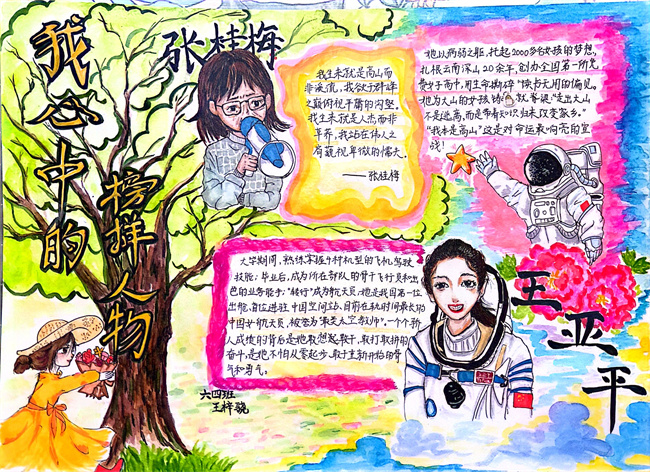 我心中的
榜样人物
张桂梅
我生来就是高山而
非溪流，我欲于群峰
之巅俯视平庸的沟壑。
我生来就是人杰而非
草芥，我站在伟人之
肩藐视卑微的懦夫。
——张桂梅
她以病弱之躯，托起2000多名女孩的梦想。
扎根云南深山20余年，创办全国第一所免
费女子高中，用生命撕碎"读书无用"的偏见。
她为大山的女孩
誓：走出大山
不是逃离，而是带着知识归来改变家乡。"
"我本是高山"这是对命运最响亮的宣
战！
大学期间，熟练掌握4种机型的飞机驾驶
技能；毕业后，成为所在部队的骨干飞行员和出
色的业务能手；"转行"成为航天员；她是我国第一位
出舱、首位进驻中国空间站、目前在轨时间最长的
中国女航天员，被誉为"最美太空教师"。一个个骄
人成绩的背后是她敢想敢干、敢打敢拼的
奋斗，是她不怕从零起步、敢于重新开始的骨
气和勇气。
王亚平
六四班
王梓骁